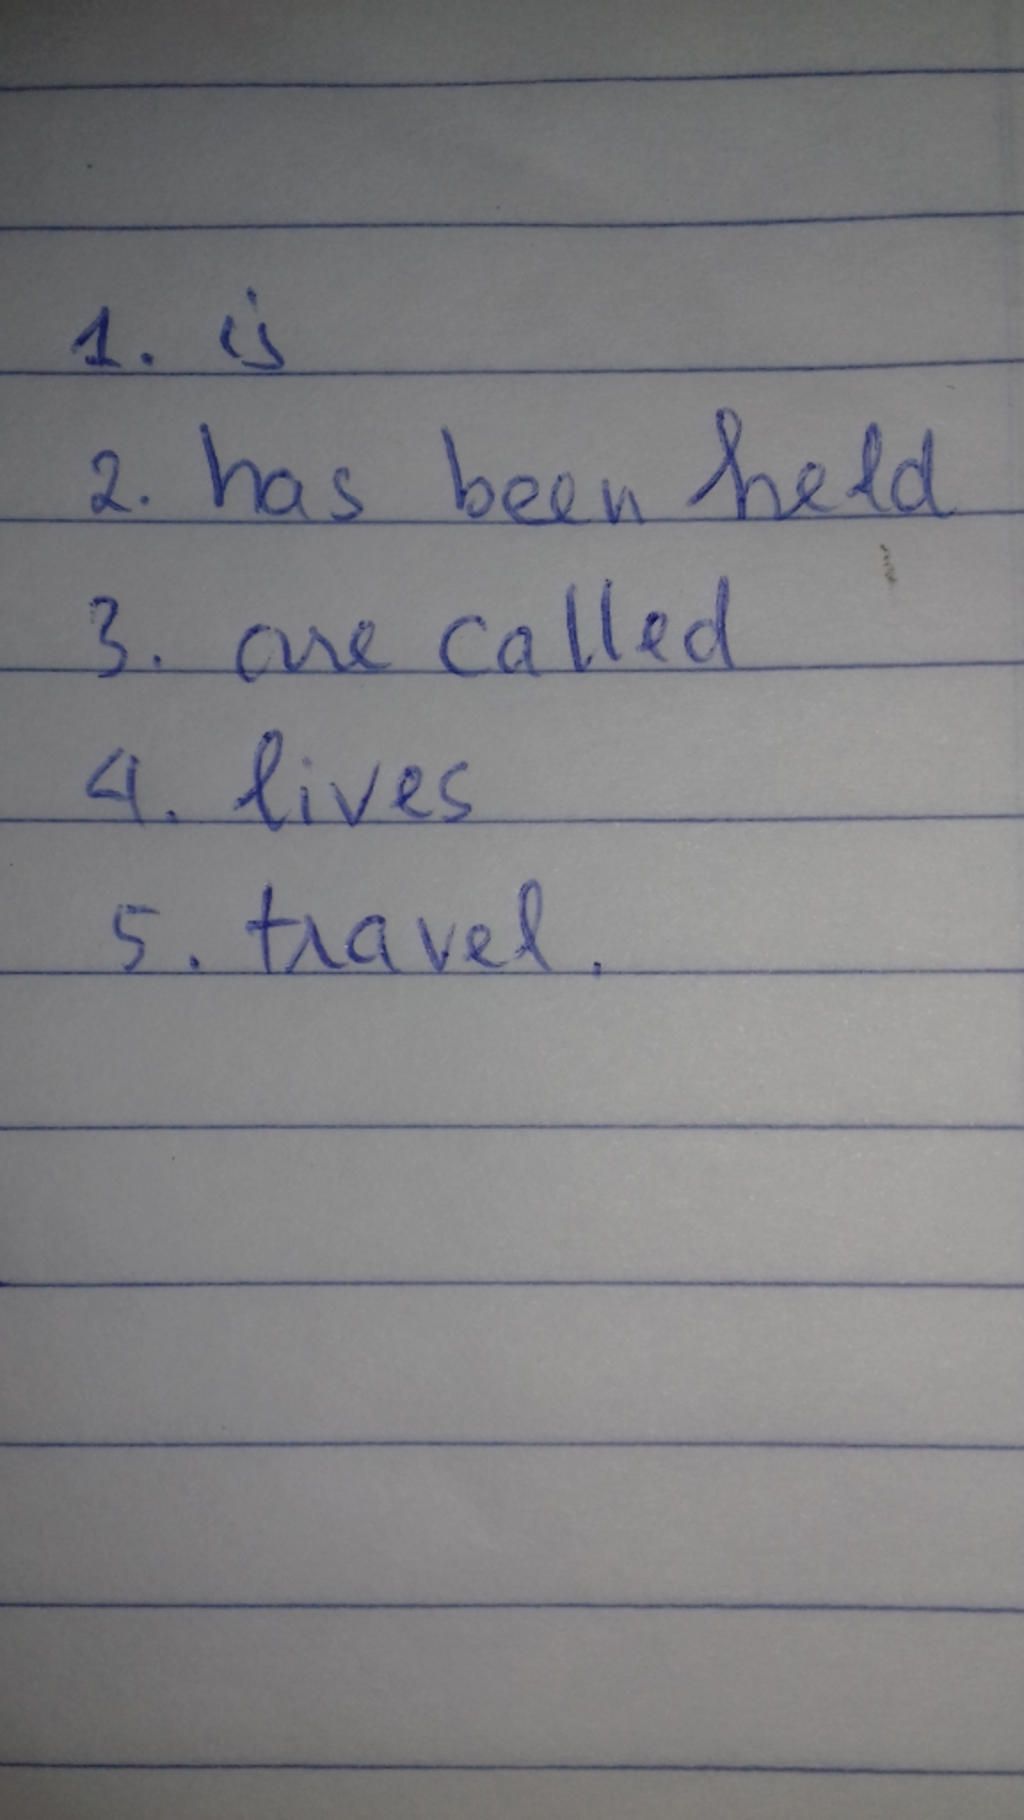 1. is
2. has been held
3. are called
4. lives
5. travel.